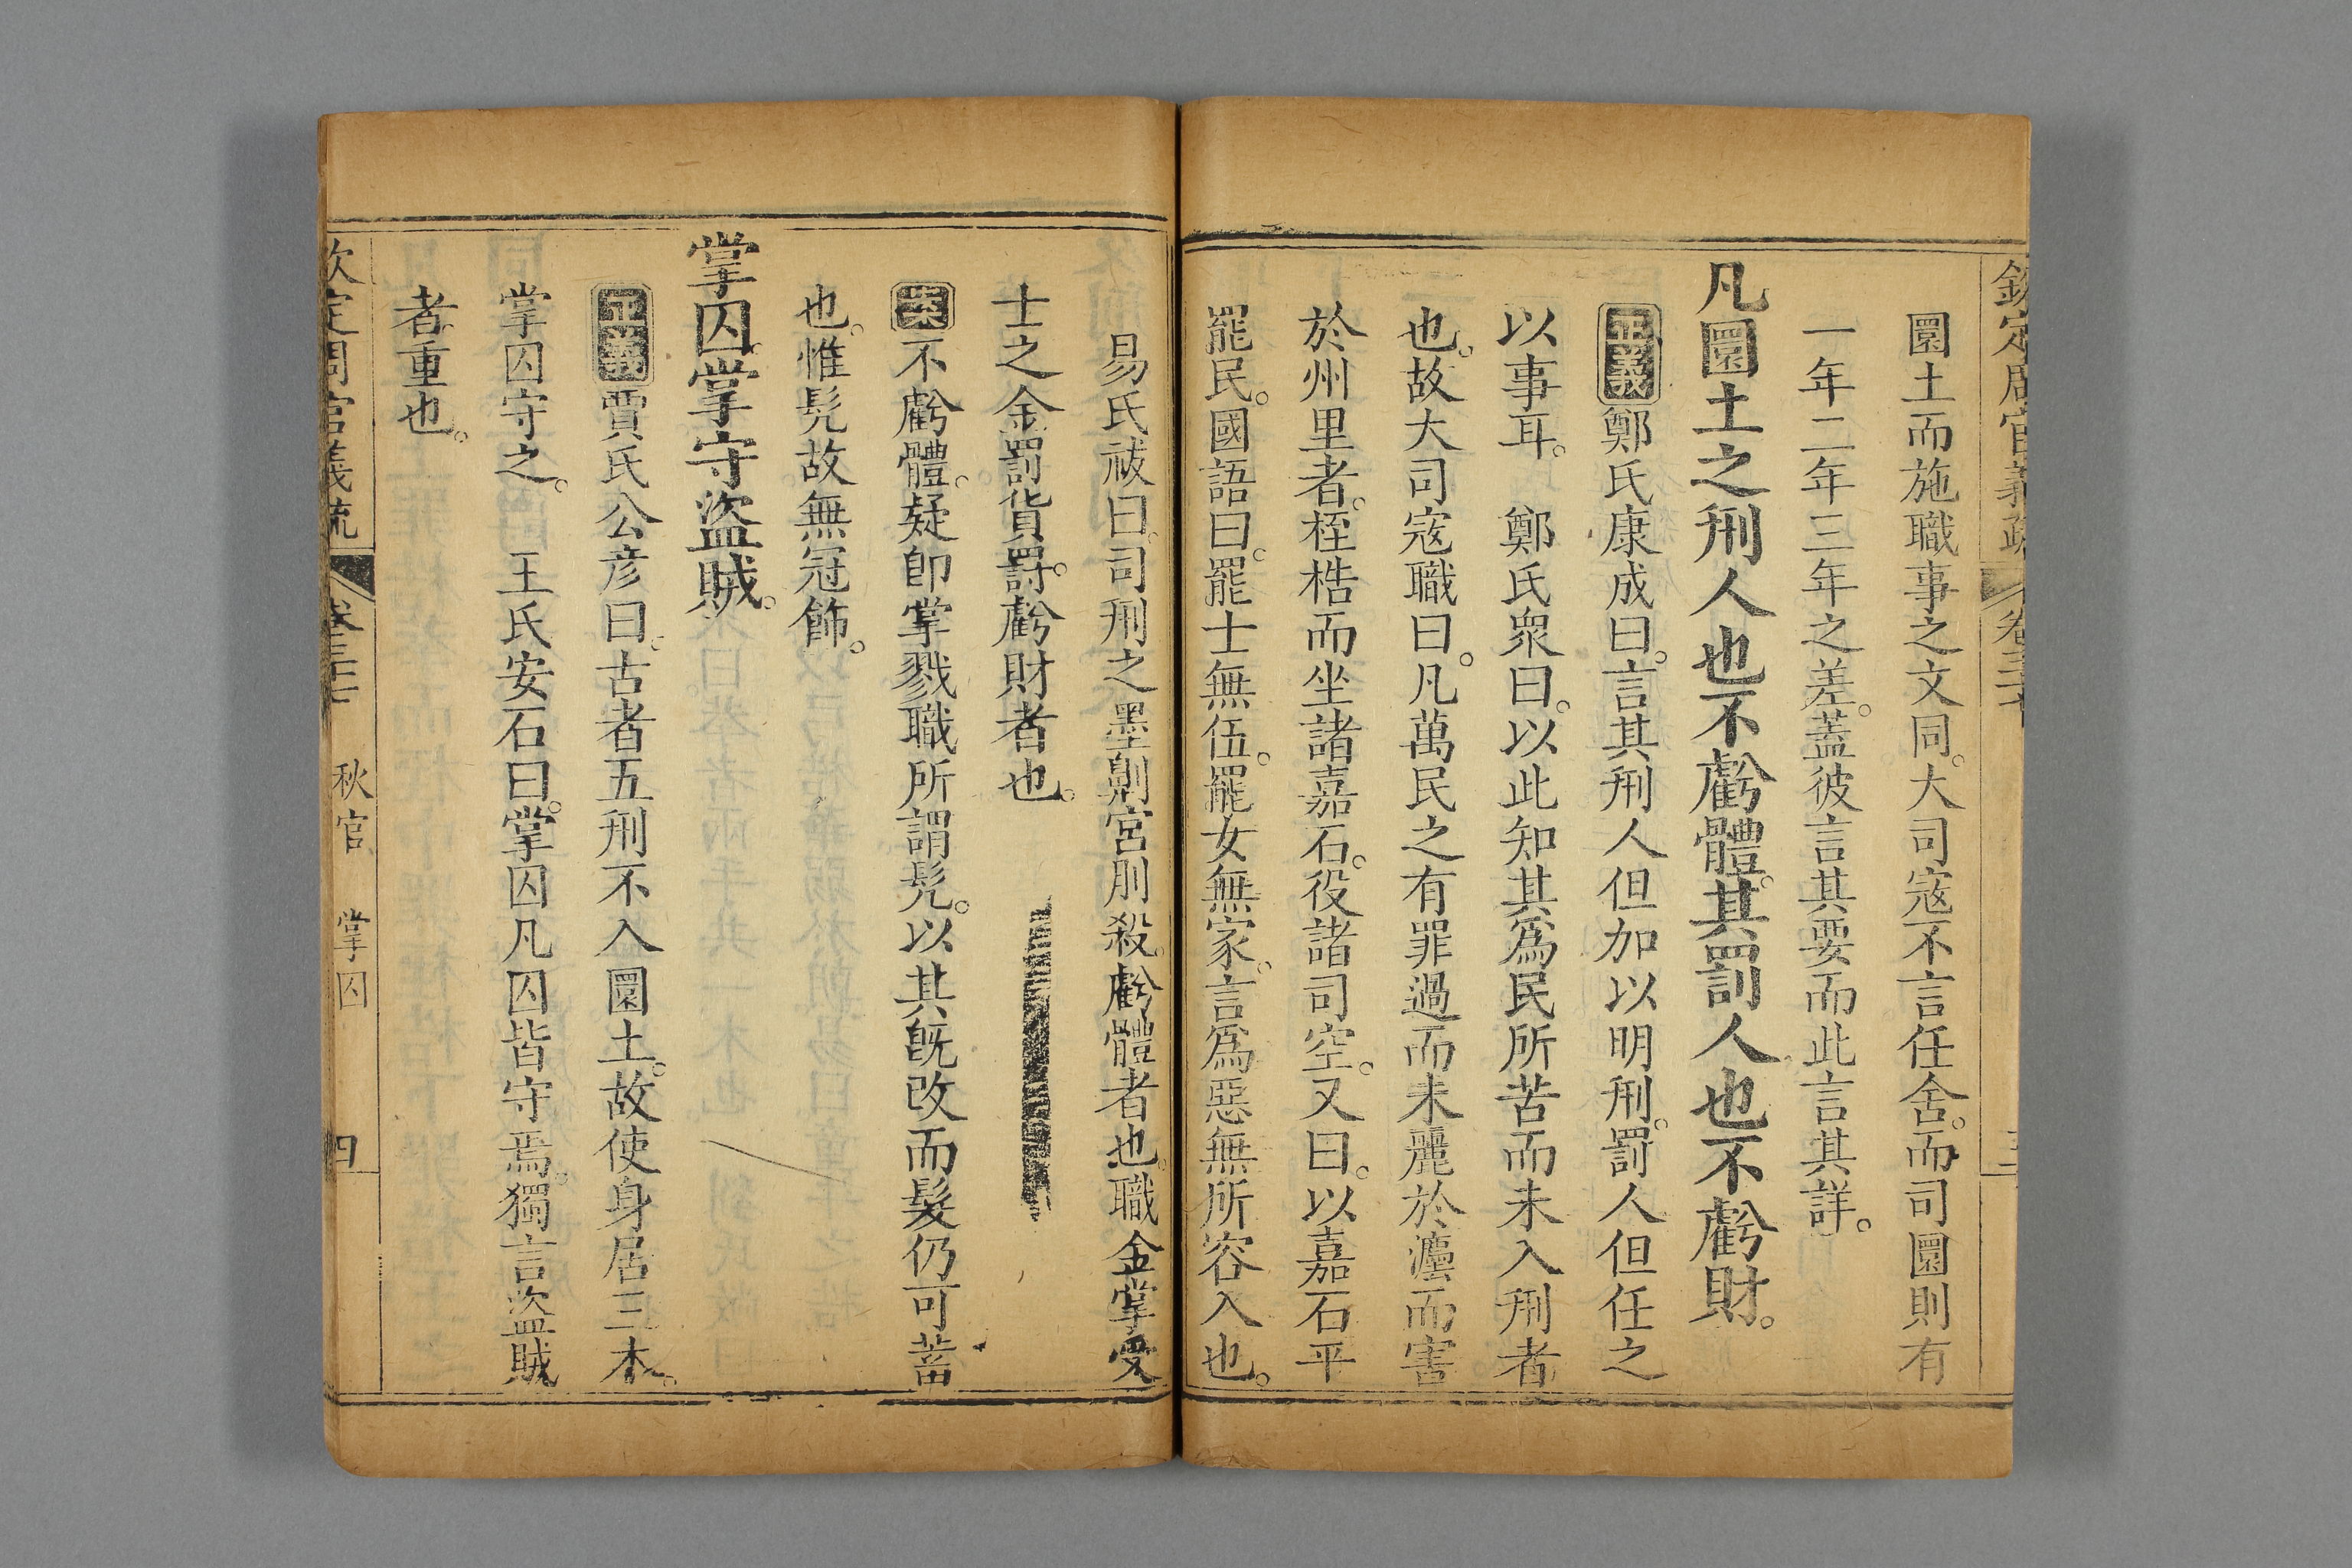 欽定周官義疏 卷三十
圜土而施職事之文同。大司寇不言任舍。而司圜則有
一年二年三年之差。蓋彼言其要而此言其詳。
凡圜土之刑人也不虧體。其罰人也不虧財。
正義 鄭氏康成曰。言其刑人但加以明刑。罰人但任之
以事耳。 鄭氏衆曰。以此知其爲民所苦而未入刑者
也。故大司寇職曰。凡萬民之有罪過而未麗於灋而害
於州里者。桎梏而坐諸嘉石。役諸司空。又曰。以嘉石平
罷民。國語曰。罷士無伍。罷女無家。言爲惡無所容入也。
易氏祓曰。司刑之墨劓宮刖殺。虧體者也。職金掌受
士之金罰貨罰。虧財者也。
案 不虧體。疑卽掌戮職所謂髡。以其旣改而髮仍可蓄
也。惟髡故無冠飾。
掌囚。掌守盜賊。
正義 賈氏公彦曰。古者五刑不入圜土。故使身居三木。
掌囚守之。 王氏安石曰。掌囚凡囚皆守焉。獨言盜賊
者。重也。
欽定周官義疏 卷三十七 秋官 掌囚 四